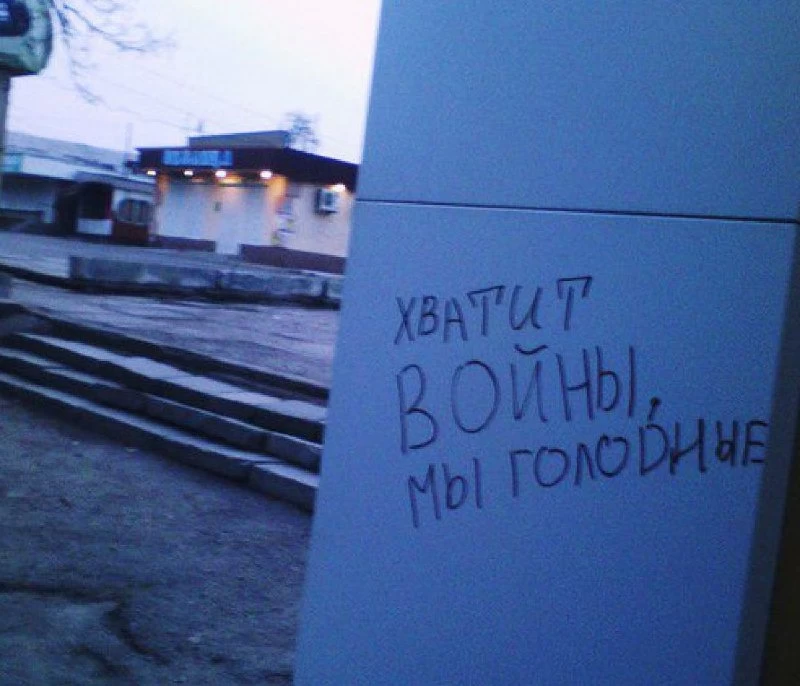 ХВАТИТ
ВОЙНЫ,
МЫ ГОЛОДНЫЕ